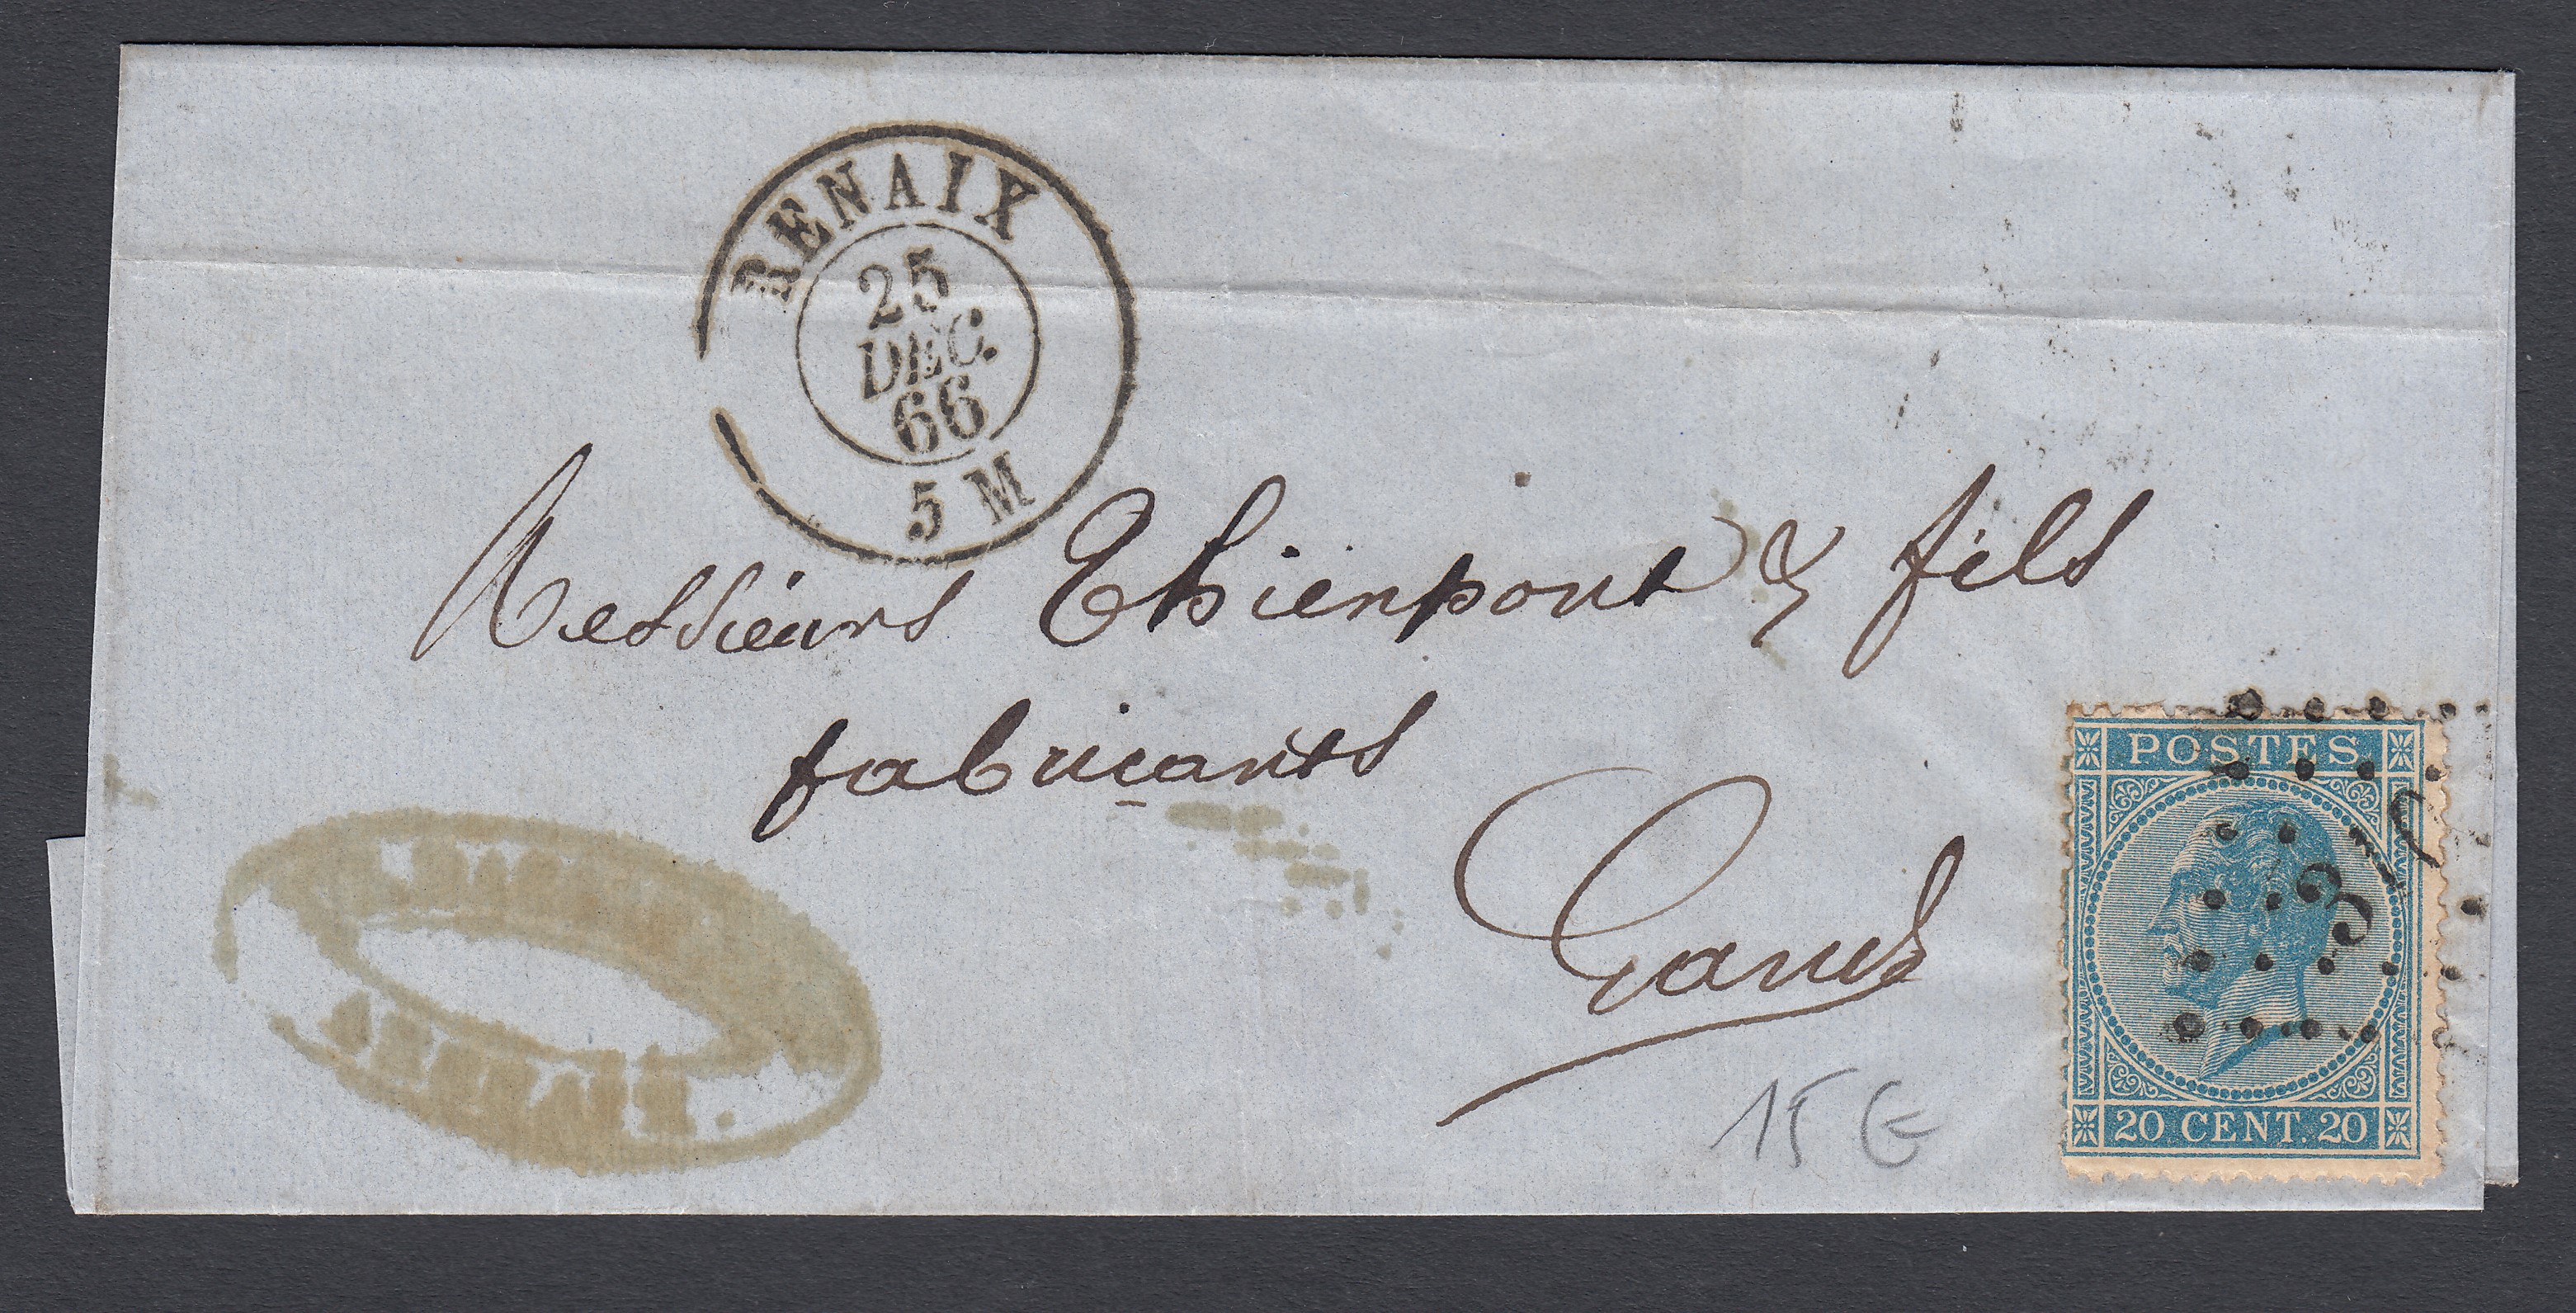 RENAIX
25
DEC.
66
5 M
Messieurs Thienpont & fils
fabricants
Gand
15 €
POSTES
20 CENT. 20